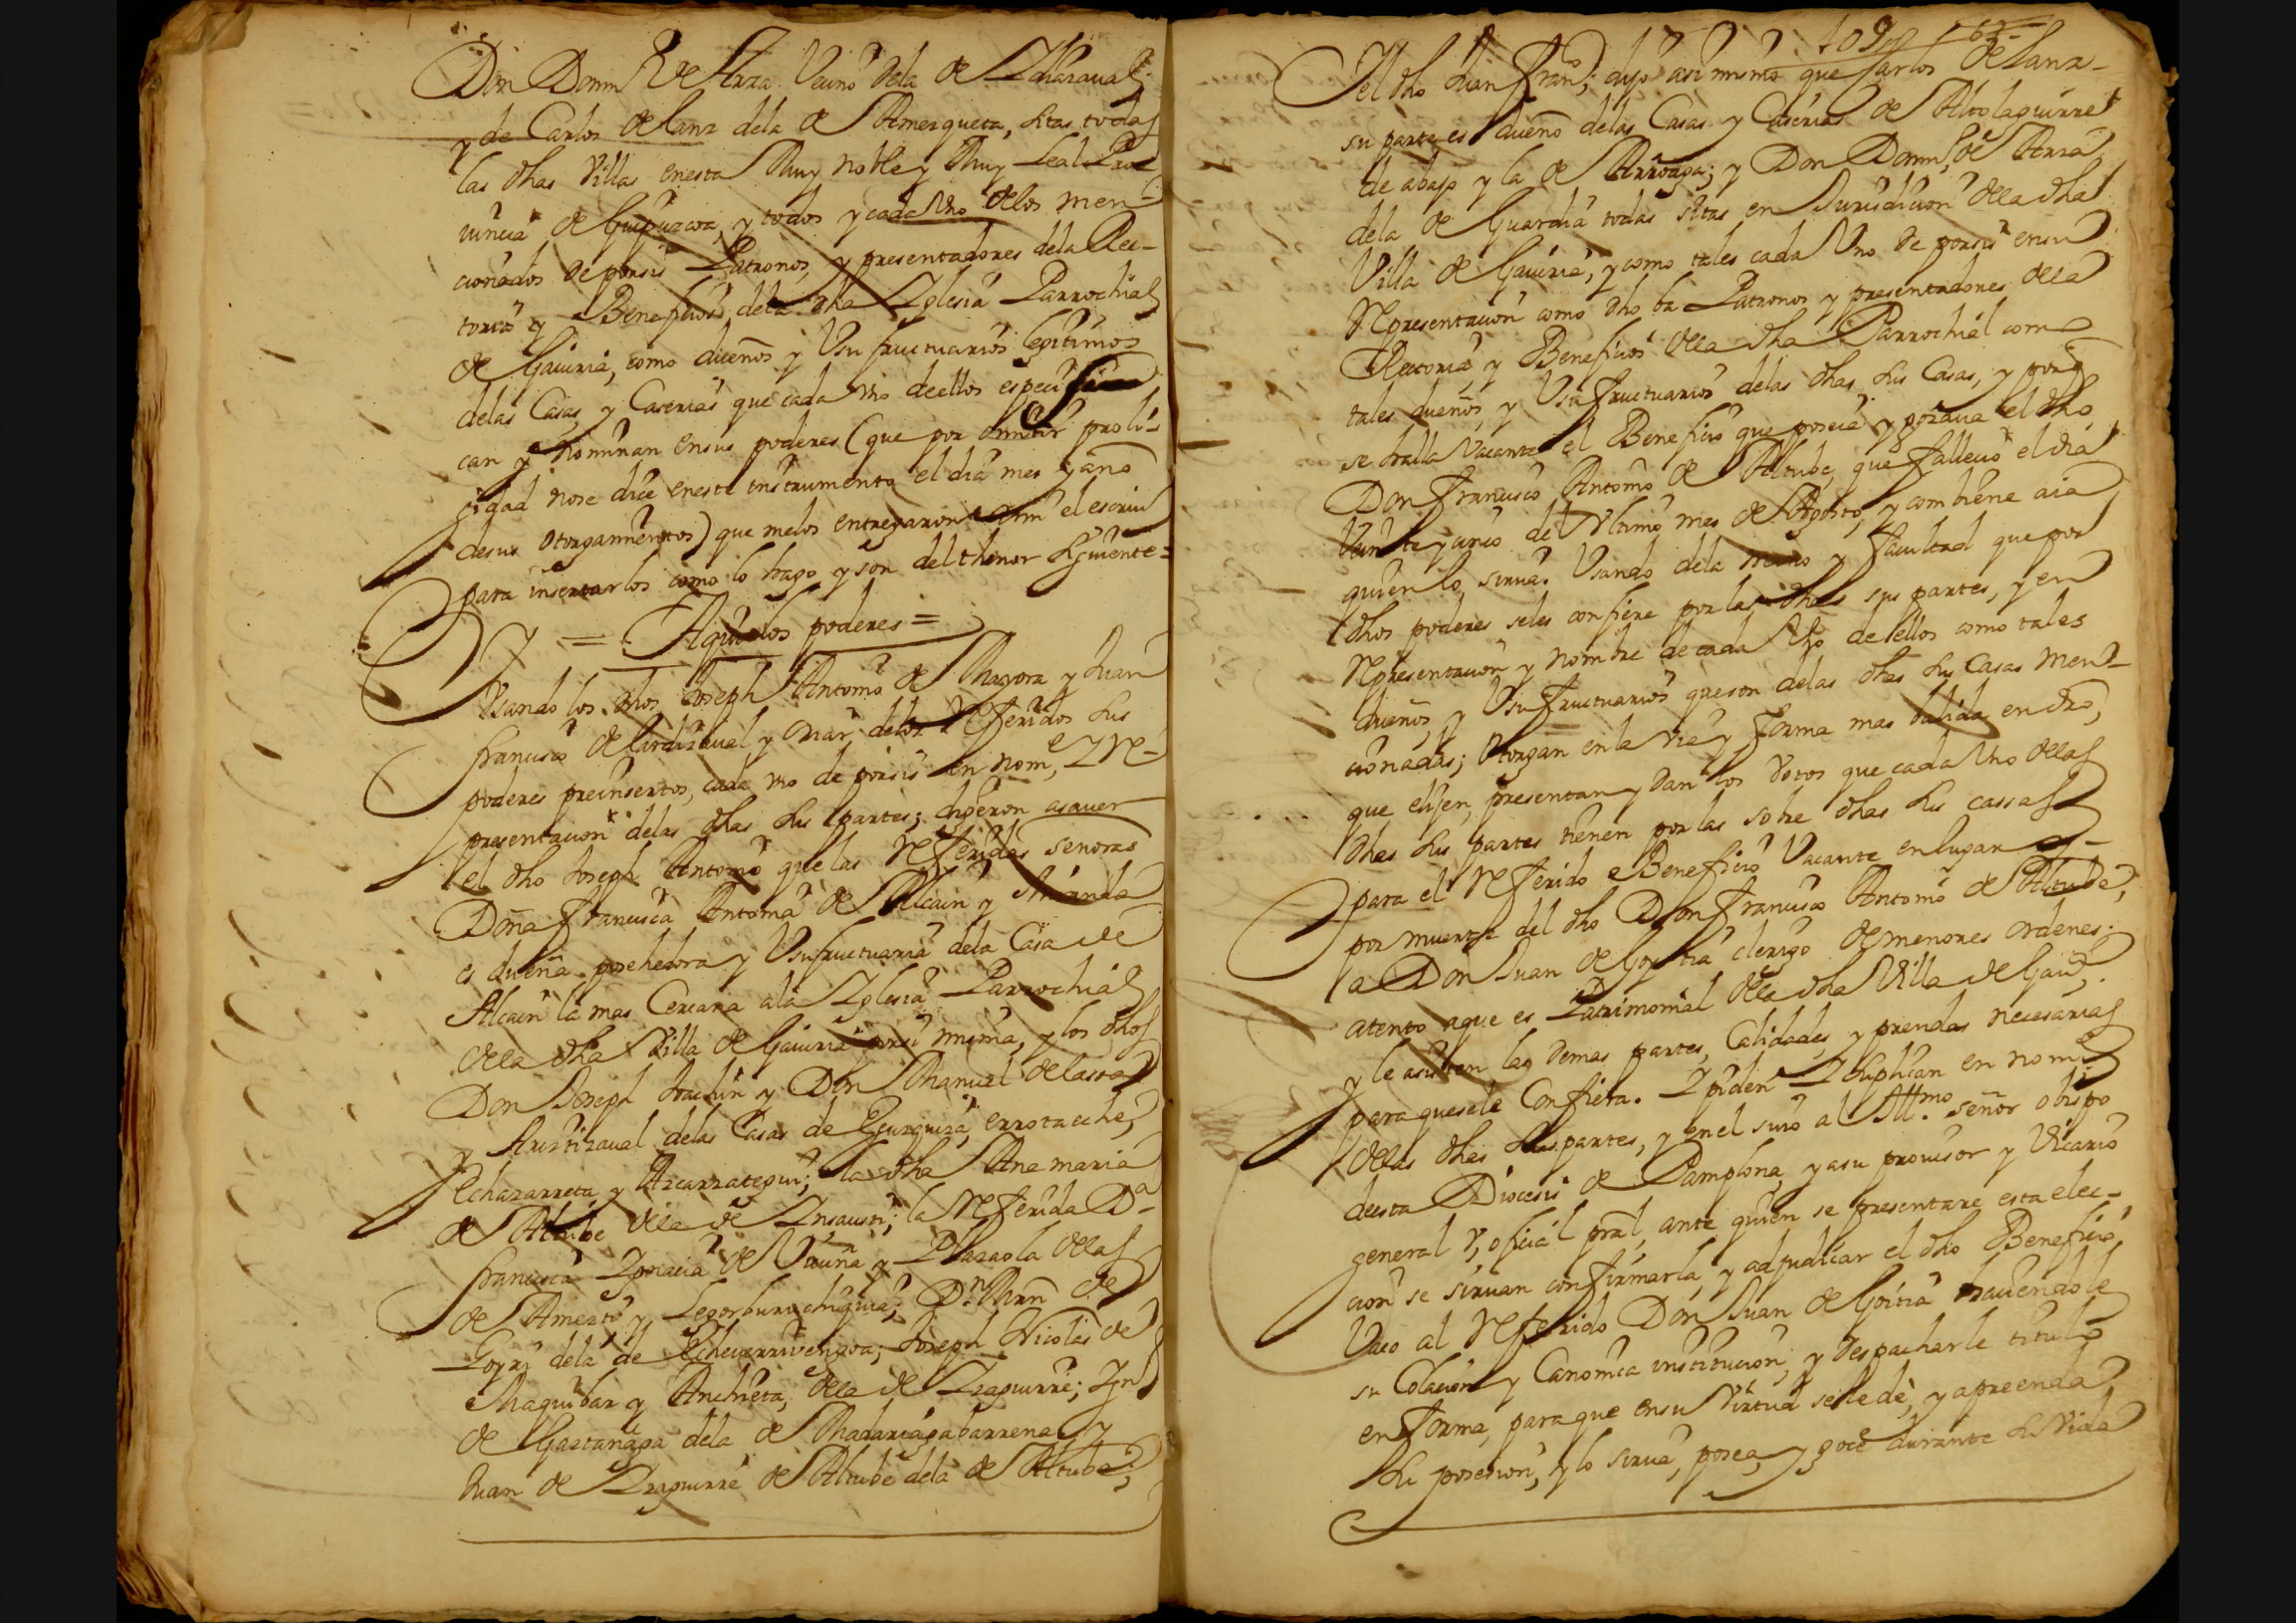 Don Domin R de Arza Vecino dela de Ychasaual;
y de Carlos de Lanz dela de Amezqueta, sitas todas
las dhas Villas enesta Muy noble y Muy Leal Pro-
uincia de Guipuzcoa, y todos y cada Vno delos men-
cionados de porsi Patronos, y presentadores dela Rec-
toria y Beneficios dela dha Yglesia Parrochial
de Gauiria, como dueños y Vsufructuarios legitimos
delas Casas, y Caserias que cada vno deellos especifi-
can y Nominan ensus poderes (que por omitir proli-
gidad nose dice eneste instrumento el dia mes y año
desus Otorgamientos) que melos entregaron ami el escriuo
para insertarlos como lo hago y son del thenor siguiente=
= Aqui los poderes =
Y Vsando los dhos Joseph Antonio de Mayora y Juan
francisco de Lardizaual y Mar; delos Referidos sus
poderes preinsertos, cada vno de porsi en nome, Y Re-
presentacion delas dhas sus partes; dixeron asauer
el dho Joseph Antonio que las Referidas señoras
Doña Francisca Antonia de Alcain y Miranda
es dueña posehedora y Vsufructuaria dela Casa de
Alcain la mas Cercana ala Yglesia Parrochial
dela dha Villa de Gauiria porsi misma, y los dhos
Don Joseph Joachin y Don Manuel de lasa
y Aristizaual delas Casas de Egurguiza, errotaeche,
Echazarreta y Azcarrategui; la dha Ana maria
de Altube dela de Insausti; la Referida Da
francisca Ygnacia de Vicuña y Plazaola delas
de Amezti y Legorburu chiquia; Dn Mrn de
Goyri dela de Echeuerriuengoa; Joseph Nicolas de
Maquibar y Anchieta, dela de Yzaguirre; Ygn
de Gaztañaga dela de Madariagabarrena, y
Juan de Yzaguirre de Altube dela de Altube;
109 163
Y el dho Juan Frano; dijo asi mismo que Carlos de Lanz
su parte es dueño delas Casas y Caserias de Altolaguirre
de abajo y la de Arroaga; y Don Domin de Arza
dela de Guardia todas sitas en Jurisdicion dela dha
Villa de Gauiria, y como tales cada Vno de porsi ensu
Representacion como dho ba Patronos y presentadores dela
Rectoria y Beneficios dela dha Parrochial como
tales dueños, y Vsufructuarios delas dhas sus Casas, y porq
se halla Vacante el Beneficio que poseia y gozaua el dho
Don francisco Antonio de Altube, que fallecio el dia
Veinte y cinco del Vltimo mes de Agosto, y combiene aia
quien lo sirua. Vsando dela mano y facultad que por
dhos poderes seles confiere por las dhas sus partes, y en
Representacion y nombre de cada Vno de ellos como tales
dueños, y Vsufructuarios queson delas dhas sus Casas Men-
cionadas; Otorgan en la via y forma mas balida en dro,
que elijen, presentan y dan los Votos que cada Vno delas
dhas sus partes tienen por las sobre dhas sus cassas
para el Referido Beneficio Vacante en lugar y
por muerte del dho Don francisco Antonio de Altube,
a Don Juan de Goytia clerigo de menores ordenes;
atento aque es Patrimonial dela dha Villa de Gaua;
y le asisten las demas partes, Calidades, y prendas necesarias
para quesele Confiera. Y piden Y suplican en nome
delas dhas sus partes, y en el suio al Illmo. señor obispo
deesta Diocesis de Pamplona, y asu prouisor y Vicario
general V, oficial pral, ante quien se presentare esta elec-
cion se siruan confirmarla, y adjudicar el dho Beneficio
Vaco al Referido Don Juan de Goitia haciendole
su Colacion y Canonica institucion, y despacharle titulo
en forma, para que ensu Virtud sele dè, y apreenda
su posesion, y lo sirua, posea, y goce durante su Vida